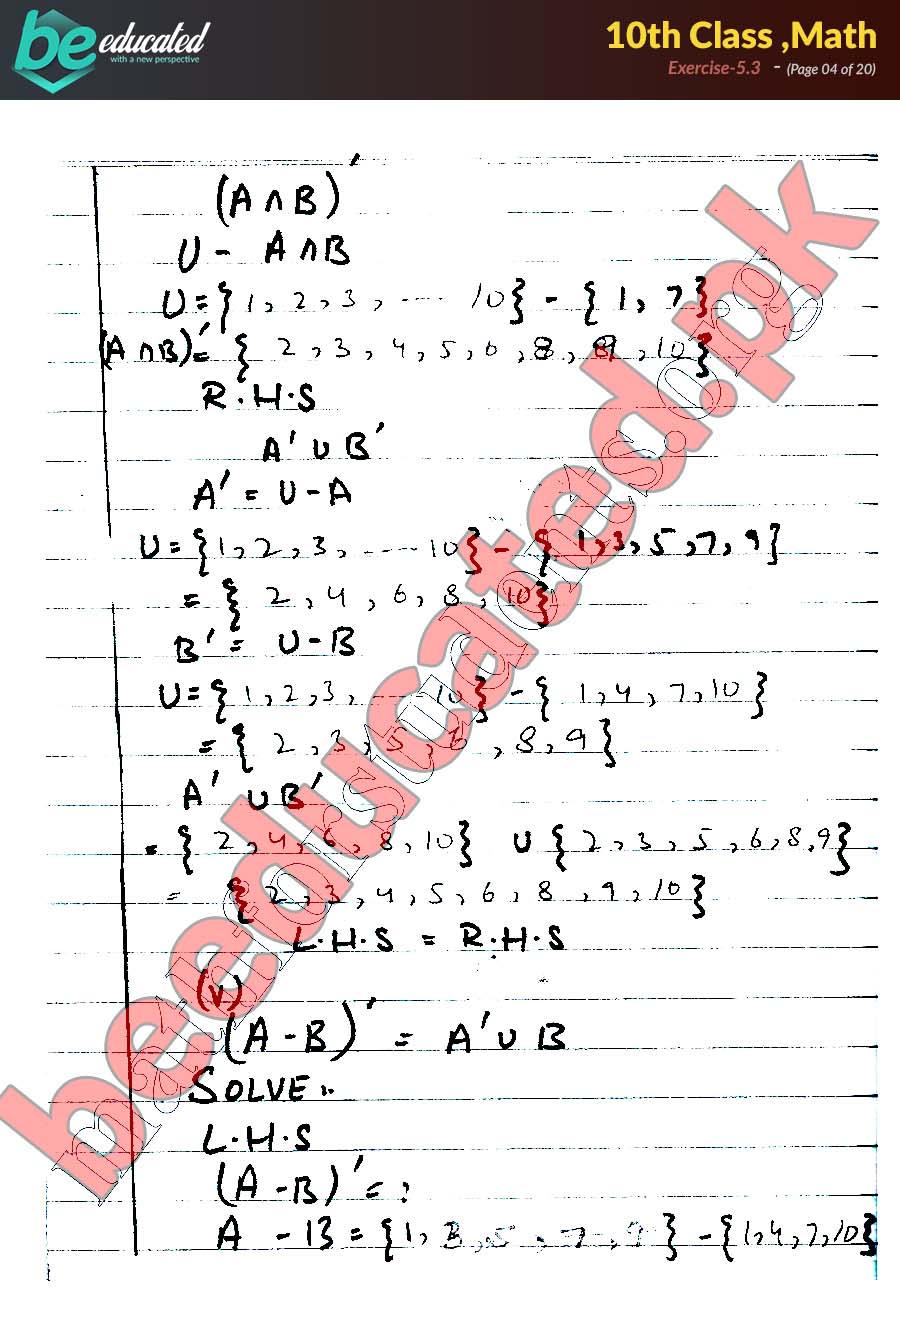 be educated
with a new perspective
10th Class ,Math
Exercise-5.3 - (Page 04 of 20)
(A ∩ B)′
U - A ∩ B
U = { 1, 2, 3, ..... 10 } - { 1, 7 }
(A ∩ B)′ = { 2, 3, 4, 5, 6, 8, 9, 10 }
R.H.S
A′ ∪ B′
A′ = U - A
U = { 1, 2, 3, ..... 10 } - { 1, 3, 5, 7, 9 }
= { 2, 4, 6, 8, 10 }
B′ = U - B
U = { 1, 2, 3, ..... 10 } - { 1, 4, 7, 10 }
= { 2, 3, 5, 6, 8, 9 }
A′ ∪ B′
= { 2, 4, 6, 8, 10 } ∪ { 2, 3, 5, 6, 8, 9 }
= { 2, 3, 4, 5, 6, 8, 9, 10 }
L.H.S = R.H.S
(v)
(A - B)′ = A′ ∪ B
SOLVE :.
L.H.S
(A - B)′ = ?
A - B = { 1, 3, 5, 7, 9 } - { 1, 4, 7, 10 }
beeducated.pk